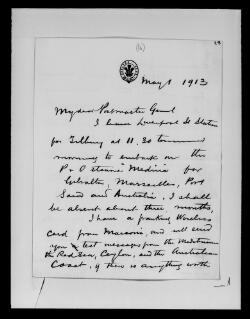 (16)
May 1 1913
My dear Postmaster Genl
I leave Liverpool St Station
for Tilbury at 11.30 tomorrow
morning to embark on the
P & O steamer "Medina" for
Gibraltar, Marseilles, Port
Said and Australia. I shall
be absent about three months.
I have a franking Wireless
card from Marconi, and will send
you test messages from the Mediterranean
the Red Sea, Ceylon, and the Australian
Coast, if there is anything worth